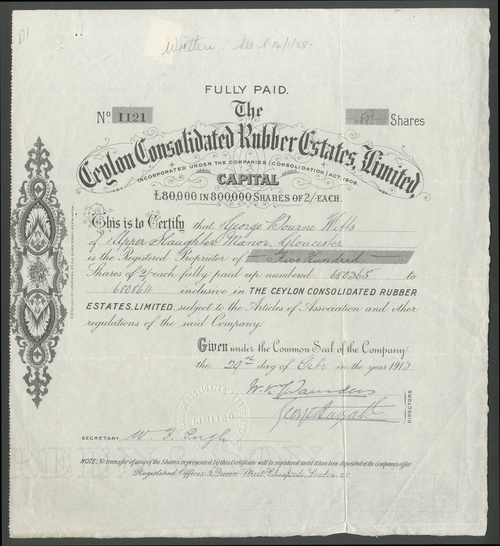 Written. See l 16/1/58.
FULLY PAID.
No 1121
500 Shares
The
Ceylon Consolidated Rubber Estates, Limited,
INCORPORATED UNDER THE COMPANIES (CONSOLIDATION) ACT, 1908.
CAPITAL
£80,000 IN 800,000 SHARES OF 2/- EACH.
This is to Certify that George Bourne Witts
of Upper Slaughter Manor, Gloucester
is the Registered Proprietor of Five Hundred
Shares of 2/- each fully paid up numbered 680365 to
680864 inclusive in THE CEYLON CONSOLIDATED RUBBER
ESTATES, LIMITED, subject to the Articles of Association and other
regulations of the said Company.
Given under the Common Seal of the Company
the 29th day of Oct in the year 1912
DIRECTORS.
SECRETARY
NOTE, No transfer of any of the Shares represented by this Certificate will be registered until it has been deposited at the Company's office
Registered Offices: Queen Street, Cheapside, London, E.C.